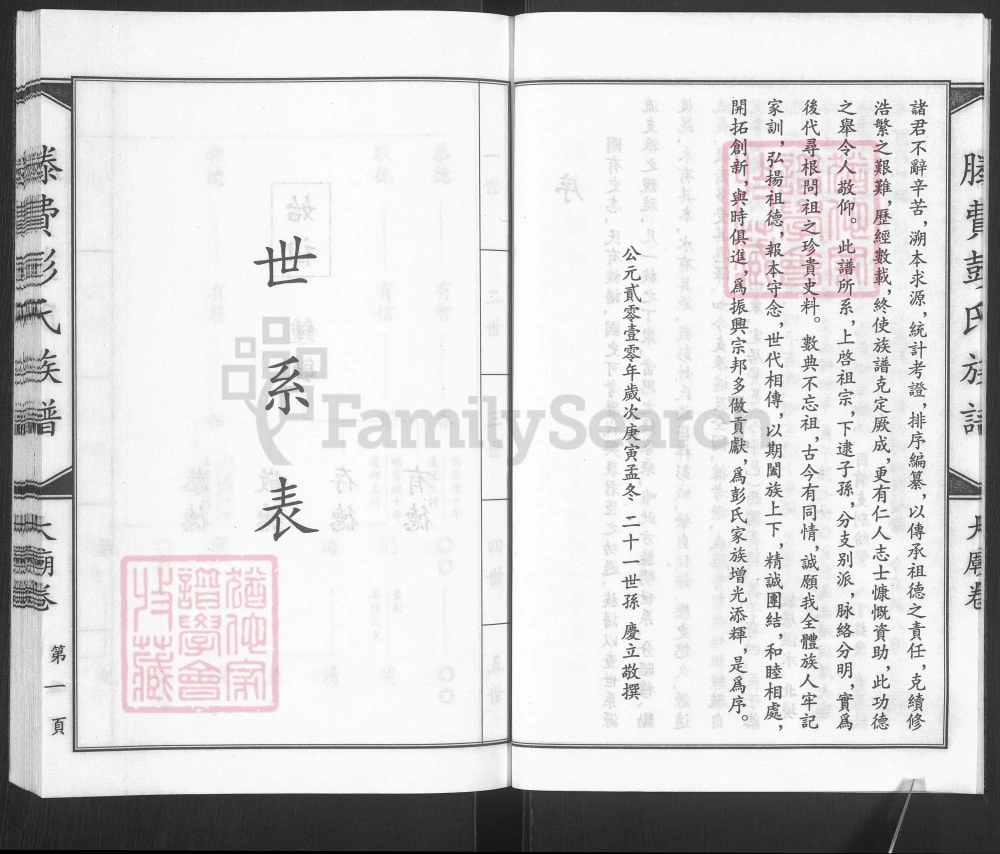 滕費彭氏族譜
大廟卷
諸君不辭辛苦，溯本求源，統計考證，排序編纂，以傳承祖德之責任，克續修
浩繁之艱難，歷經數載，終使族譜克定厥成，更有仁人志士慷慨資助，此功德
之舉令人敬仰。此譜所系，上啓祖宗，下逮子孫，分支別派，脉絡分明，實爲
後代尋根問祖之珍貴史料。數典不忘祖，古今有同情，誠願我全體族人牢記
家訓，弘揚祖德，報本守念，世代相傳，以期闔族上下，精誠團結，和睦相處，
開拓創新，與時俱進，爲振興宗邦多做貢獻，爲彭氏家族增光添輝，是爲序。
公元貳零壹零年歲次庚寅孟冬 二十一世孫 慶立敬撰
世系表
滕費彭氏族譜
大廟卷
第一頁
猶他家
譜學會
收藏
猶他家
譜學會
收藏
FamilySearch